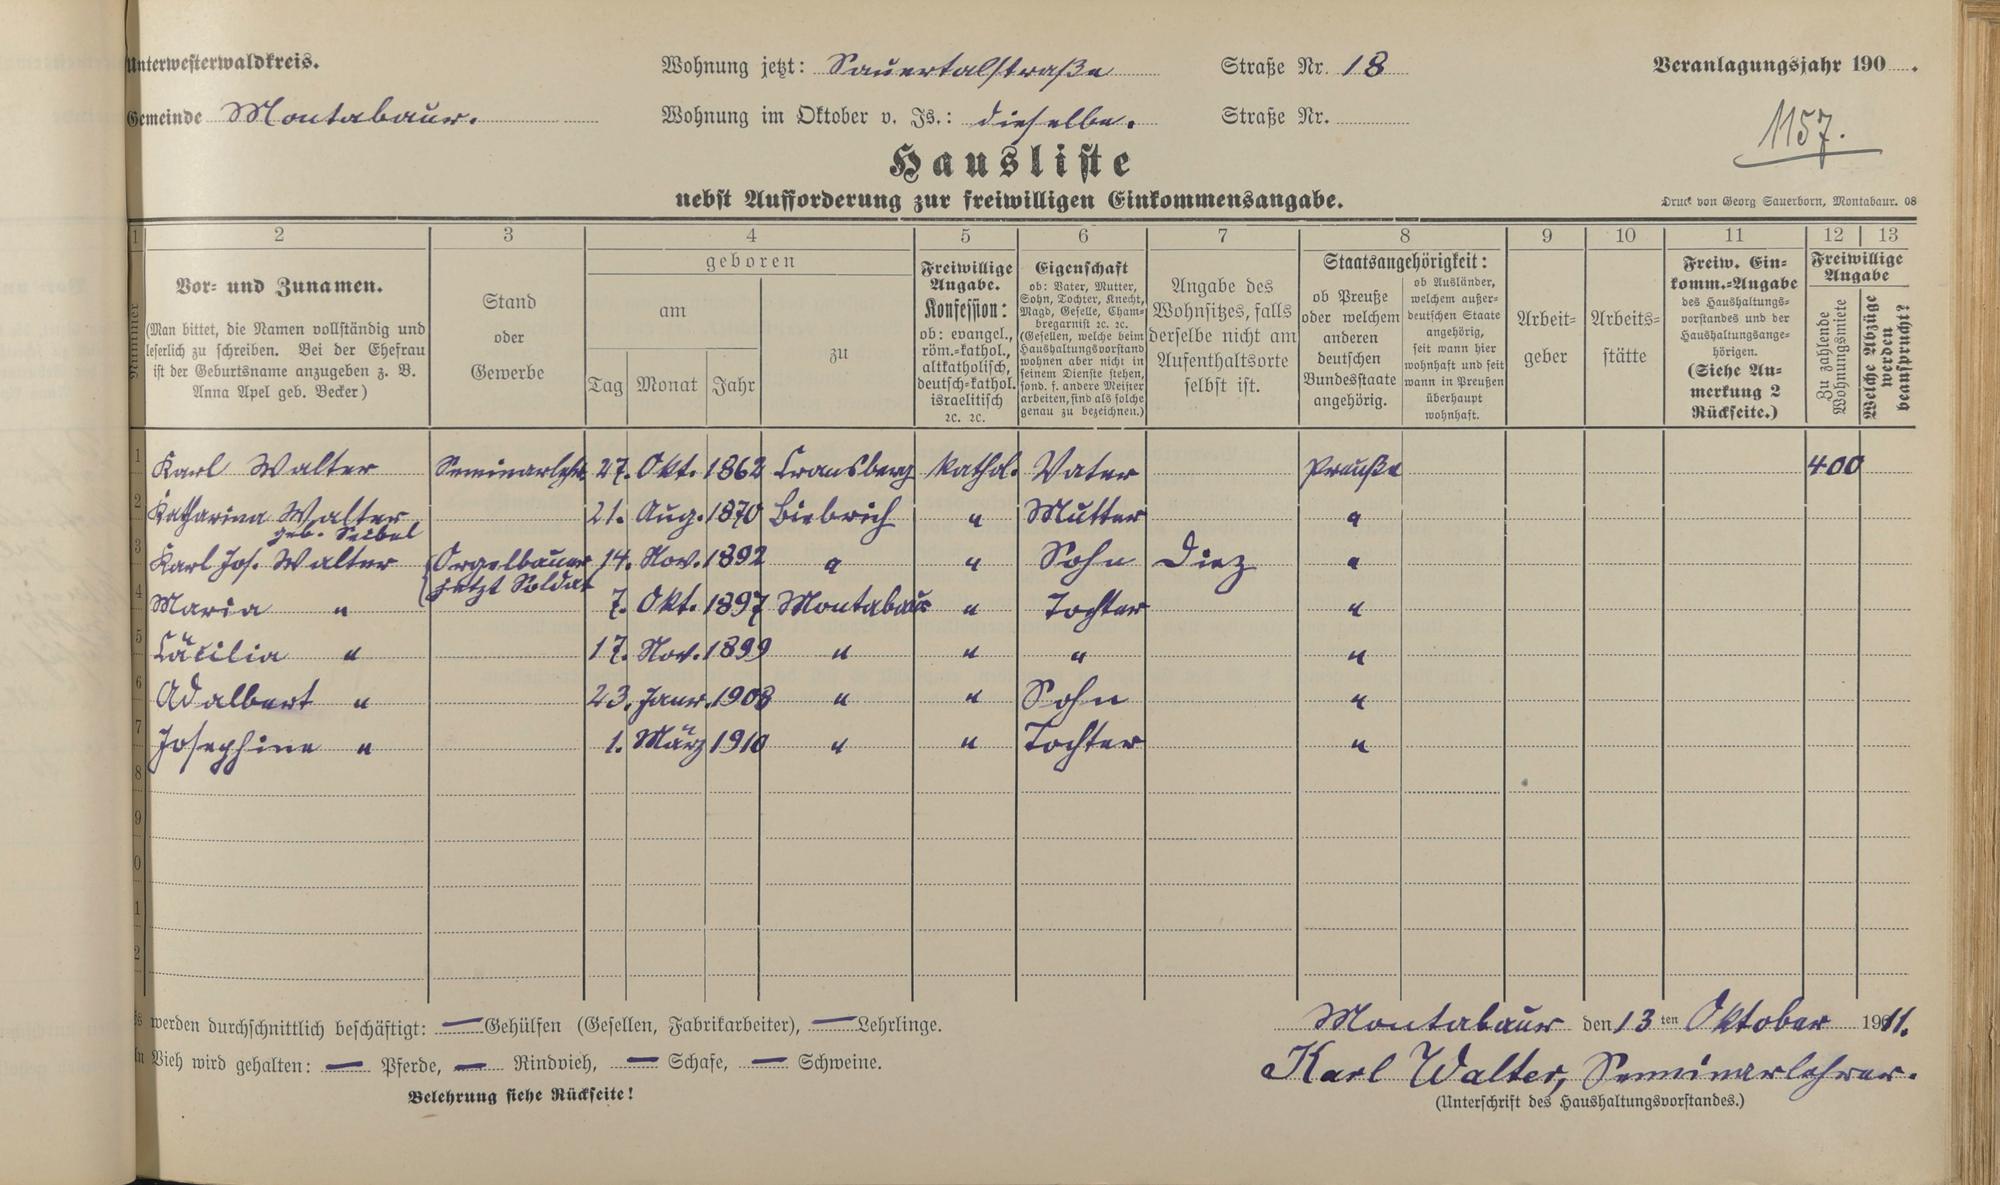 Unterwesterwaldkreis.
Wohnung jetzt: Sauertalstraße Straße Nr. 18
Veranlagungsjahr 190 .
Gemeinde Montabaur.
Wohnung im Oktober v. Js.: dieselbe. Straße Nr.
1157.
Hausliste
nebst Aufforderung zur freiwilligen Einkommensangabe.
Druck von Georg Sauerborn, Montabaur. 08
1 2 3 4 5 6 7 8 9 10 11 12 13
Nummer
Vor- und Zunamen.
(Man bittet, die Namen vollständig und
leserlich zu schreiben. Bei der Ehefrau
ist der Geburtsname anzugeben z. B.
Anna Apel geb. Becker)
Stand
oder
Gewerbe
geboren
am
Tag Monat Jahr
zu
Freiwillige
Angabe.
Konfession:
ob: evangel.,
röm.-kathol.,
altkatholisch,
deutsch-kathol.
israelitisch
ꝛc. ꝛc.
Eigenschaft
ob: Vater, Mutter,
Sohn, Tochter, Knecht,
Magd, Geselle, Cham-
bregarnist ꝛc. ꝛc.
(Gesellen, welche beim
Haushaltungsvorstand
wohnen aber nicht in
seinem Dienste stehen,
sond. f. andere Meister
arbeiten, sind als solche
genau zu bezeichnen.)
Angabe des
Wohnsitzes, falls
derselbe nicht am
Aufenthaltsorte
selbst ist.
Staatsangehörigkeit:
ob Preuße
oder welchem
anderen
deutschen
Bundesstaate
angehörig.
ob Ausländer,
welchem außer-
deutschen Staate
angehörig,
seit wann hier
wohnhaft und seit
wann in Preußen
überhaupt
wohnhaft.
Arbeit-
geber
Arbeits-
stätte
Freiw. Ein-
komm.-Angabe
des Haushaltungs-
vorstandes und der
Haushaltungsange-
hörigen.
(Siehe An-
merkung 2
Rückseite.)
Freiwillige
Angabe
Zu zahlende
Wohnungsmiete
Welche Abzüge
werden
beansprucht?
1 Karl Walter Seminarlehr. 27. Okt. 1862 Cransberg kathol. Vater Preuße 400
2 Katharina Walter 21. Aug. 1870 Biebrich " Mutter "
geb. Seibel
3 Karl Jos. Walter Orgelbauer 14. Nov. 1892 " " Sohn Diez "
jetzt Soldat
4 Maria " 7. Okt. 1897 Montabaur " Tochter "
5 Cäcilia " 17. Nov. 1899 " " " "
6 Adalbert " 23. Janr. 1908 " " Sohn "
7 Josephine " 1. März 1910 " " Tochter "
8
9
0
1
2
werden durchschnittlich beschäftigt: — Gehülfen (Gesellen, Fabrikarbeiter), — Lehrlinge.
Montabaur den 13ten Oktober 1911.
Vieh wird gehalten: — Pferde, — Rindvieh, — Schafe, — Schweine.
Karl Walter, Seminarlehrer.
Belehrung siehe Rückseite!
(Unterschrift des Haushaltungsvorstandes.)